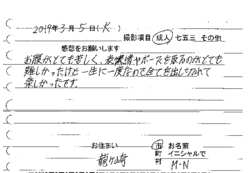 2019年3月5日(火)
撮影項目 成人 七五三 その他
感想をお願いします
お腹がとても苦しく、表情やポーズを取るのがとても
難しかったけど一生に一度なので全てを出しきれて
楽しかったです。
お住まい 市 お名前
龍ヶ崎 町 イニシャルで
村 M・N